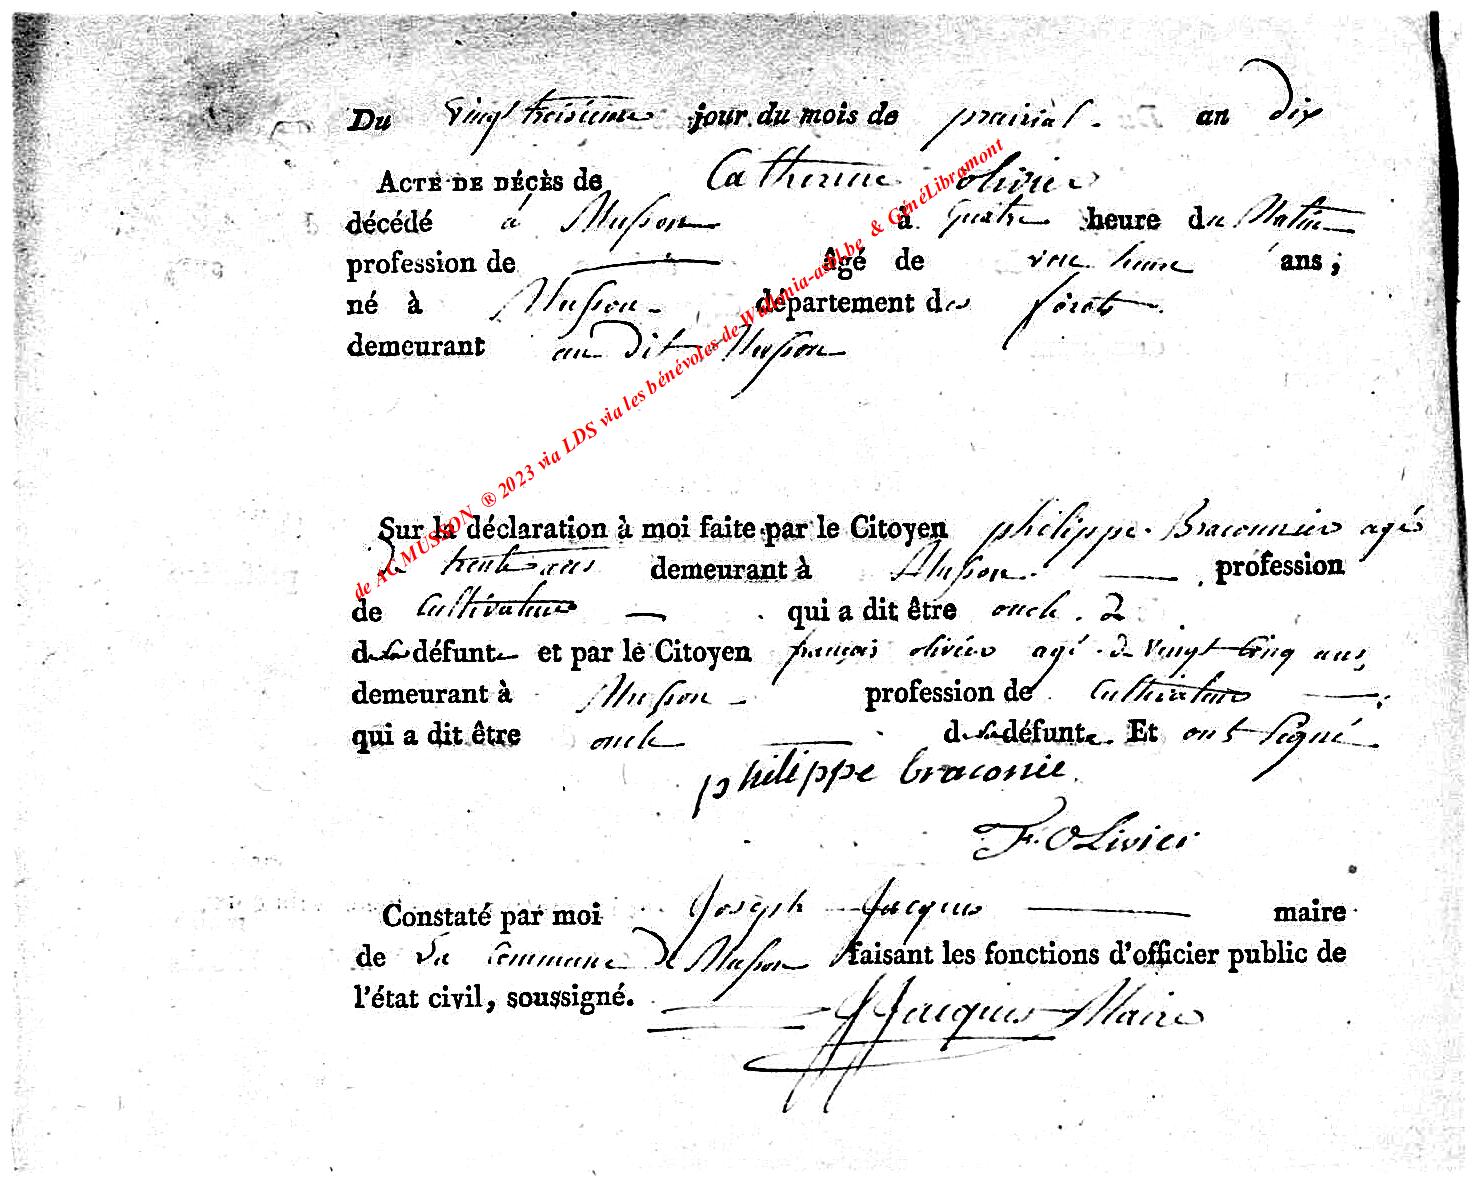 Du vingt troisieme jour du mois de prairial. an dix
ACTE DE DÉCÈS de Catherine olivier
décédé à Musson à quatre heure du Matin
profession de — âgé de une heure ans ;
né à Musson - département des forêts.
demeurant au dit Musson
de AC MUSSON ® 2023 via LDS via les bénévoles de Wallonia-asbl.be & GénéLibramont
Sur la déclaration à moi faite par le Citoyen philippe Braconnier agé
de trente ans demeurant à Musson. — profession
de Cultivateur — qui a dit être oncle. de
de la défunte et par le Citoyen françois olivier agé de vingt Cinq ans,
demeurant à Musson - profession de Cultivateur —
qui a dit être oncle — de la défunte. Et ont signé
philippe braconie
F. OLivier
Constaté par moi Joseph Jacques — maire
de La Commune de Musson faisant les fonctions d'officier public de
l'état civil, soussigné. JJacques Maire